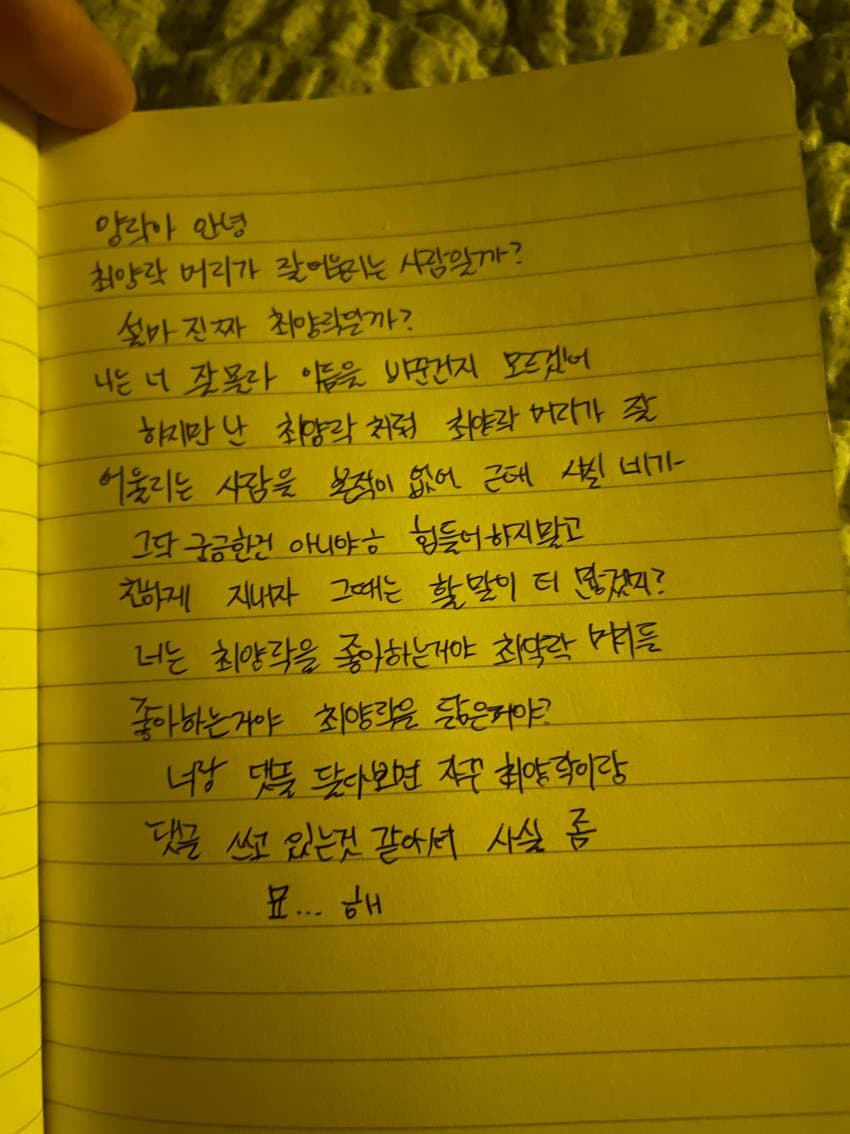 양락아 안녕
최양락 머리가 잘어울리는 사람일까?
설마 진짜 최양락일까?
나는 너 잘몰라 이름을 바꾼건지 모르겠어
하지만 난 최양락 처럼 최양락 머리가 잘
어울리는 사람을 본적이 없어 근데 사실 네가
그닥 궁금한건 아니야ㅎ 힘들어하지말고
친하게 지내자 그때는 할말이 더 많겠지?
너는 최양락을 좋아하는거야 최약락 머리를
좋아하는거야 최양락을 닮은거야?
너랑 댓글 달다보면 자꾸 최양락이랑
댓글 쓰고 있는것 같아서 사실 좀
묘... 해